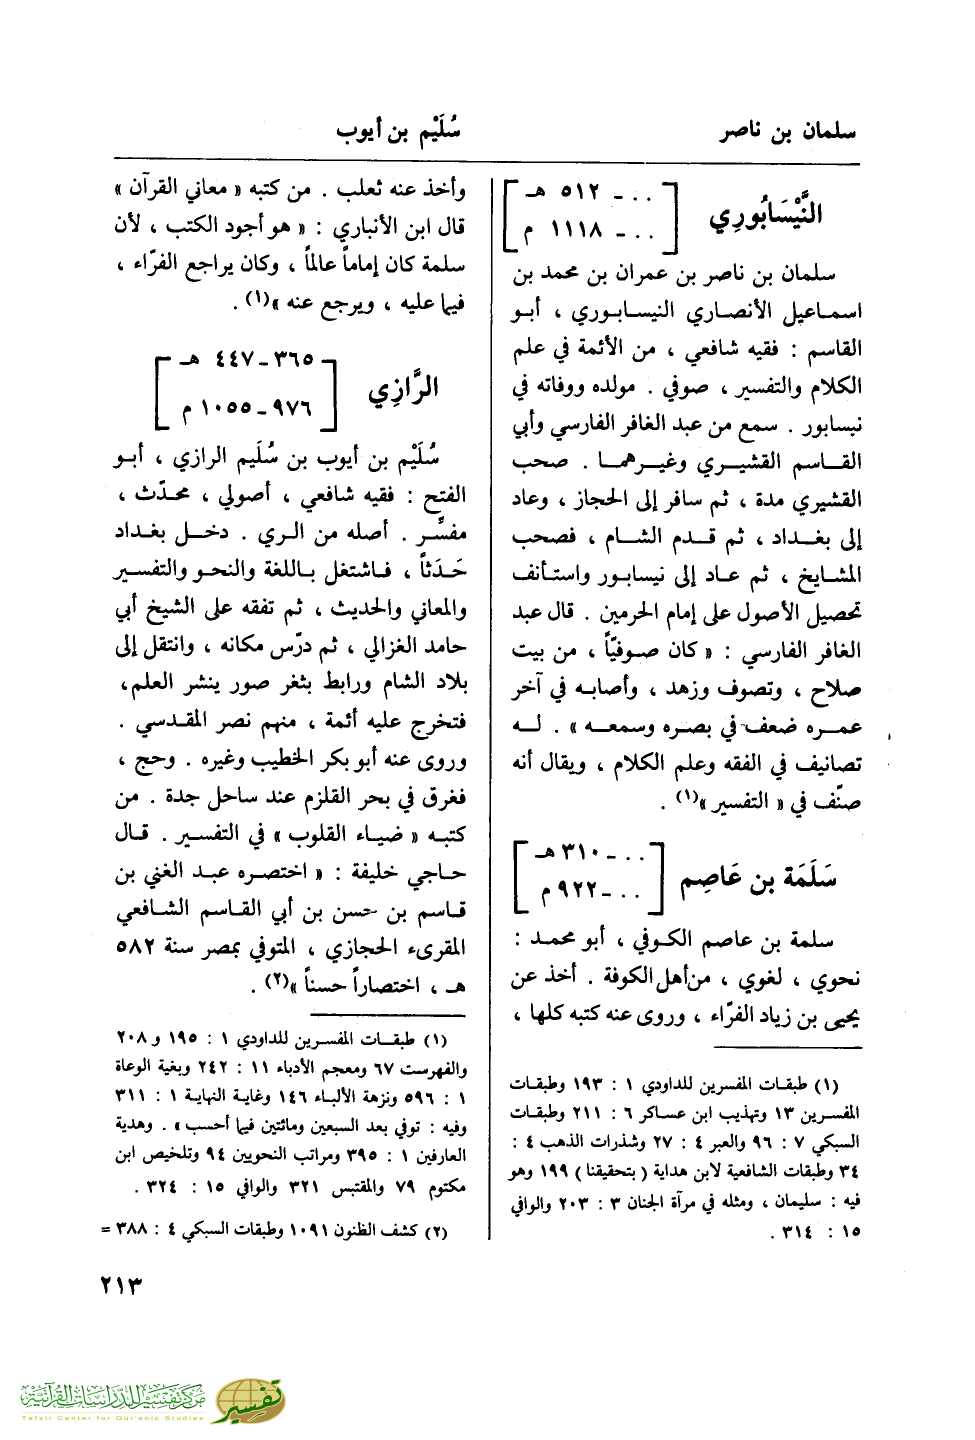 سلمان بن ناصر
سُلَيْم بن أيوب
النَّيْسَابُورِي
[ . . . ــ ٥١٢ هـ
. . . ــ ١١١٨ م ]
سلمان بن ناصر بن عمران بن محمد بن
اسماعيل الأنصاري النيسابوري ، أبو
القاسم : فقيه شافعي ، من الأئمة في علم
الكلام والتفسير ، صوفي . مولده ووفاته في
نيسابور . سمع من عبد الغافر الفارسي وأبي
القاسم القشيري وغيرهما . صحب
القشيري مدة ، ثم سافر إلى الحجاز ، وعاد
إلى بغداد ، ثم قدم الشام ، فصحب
المشايخ ، ثم عاد إلى نيسابور واستأنف
تحصيل الأصول على إمام الحرمين . قال عبد
الغافر الفارسي : « كان صوفيّاً ، من بيت
صلاح ، وتصوف وزهد ، وأصابه في آخر
عمره ضعف في بصره وسمعه » . له
تصانيف في الفقه وعلم الكلام ، ويقال أنه
صنّف في « التفسير »(١) .
سَلَمَة بن عَاصِم
[ . . . ــ ٣١٠ هـ
. . . ــ ٩٢٢ م ]
سلمة بن عاصم الكوفي ، أبو محمد :
نحوي ، لغوي ، من أهل الكوفة . أخذ عن
يحيى بن زياد الفرّاء ، وروى عنه كتبه كلها ،
(١) طبقات المفسرين للداودي ١ : ١٩٣ وطبقات
المفسرين ١٣ وتهذيب ابن عساكر ٦ : ٢١١ وطبقات
السبكي ٧ : ٩٦ والعبر ٤ : ٢٧ وشذرات الذهب ٤ :
٣٤ وطبقات الشافعية لابن هداية ( بتحقيقنا ) ١٩٩ وهو
فيه : سليمان ، ومثله في مرآة الجنان ٣ : ٢٠٣ والوافي
١٥ : ٣١٤ .
وأخذ عنه ثعلب . من كتبه « معاني القرآن »
قال ابن الأنباري : « هو أجود الكتب ، لأن
سلمة كان إماماً عالماً ، وكان يراجع الفرّاء ،
فيما عليه ، ويرجع عنه »(١) .
الرَّازِي
[ ٣٦٥ ــ ٤٤٧ هـ
٩٧٦ ــ ١٠٥٥ م ]
سُلَيْم بن أيوب بن سُلَيم الرازي ، أبو
الفتح : فقيه شافعي ، أصولي ، محدّث ،
مفسِّر . أصله من الري . دخل بغداد
حَدَثاً ، فاشتغل باللغة والنحو والتفسير
والمعاني والحديث ، ثم تفقه على الشيخ أبي
حامد الغزالي ، ثم درّس مكانه ، وانتقل إلى
بلاد الشام ورابط بثغر صور ينشر العلم،
فتخرج عليه أئمة ، منهم نصر المقدسي .
وروى عنه أبو بكر الخطيب وغيره . وحج ،
فغرق في بحر القلزم عند ساحل جدة . من
كتبه « ضياء القلوب » في التفسير . قال
حاجي خليفة : « اختصره عبد الغني بن
قاسم بن حسن بن أبي القاسم الشافعي
المقرىء الحجازي ، المتوفي بمصر سنة ٥٨٢
هـ ، اختصاراً حسناً »(٢) .
(١) طبقات المفسرين للداودي ١ : ١٩٥ و ٢٠٨
والفهرست ٦٧ ومعجم الأدباء ١١ : ٢٤٢ وبغية الوعاة
١ : ٥٩٦ ونزهة الألباء ١٤٦ وغاية النهاية ١ : ٣١١
وفيه : توفي بعد السبعين ومائتين فيما أحسب » . وهدية
العارفين ١ : ٣٩٥ ومراتب النحويين ٩٤ وتلخيص ابن
مكتوم ٧٩ والمقتبس ٣٢١ والوافي ١٥ : ٣٢٤ .
(٢) كشف الظنون ١٠٩١ وطبقات السبكي ٤ : ٣٨٨ =
٢١٣
مركز تفسير للدراسات القرآنية
Tafsir Center for Qur'anic Studies
تفسير